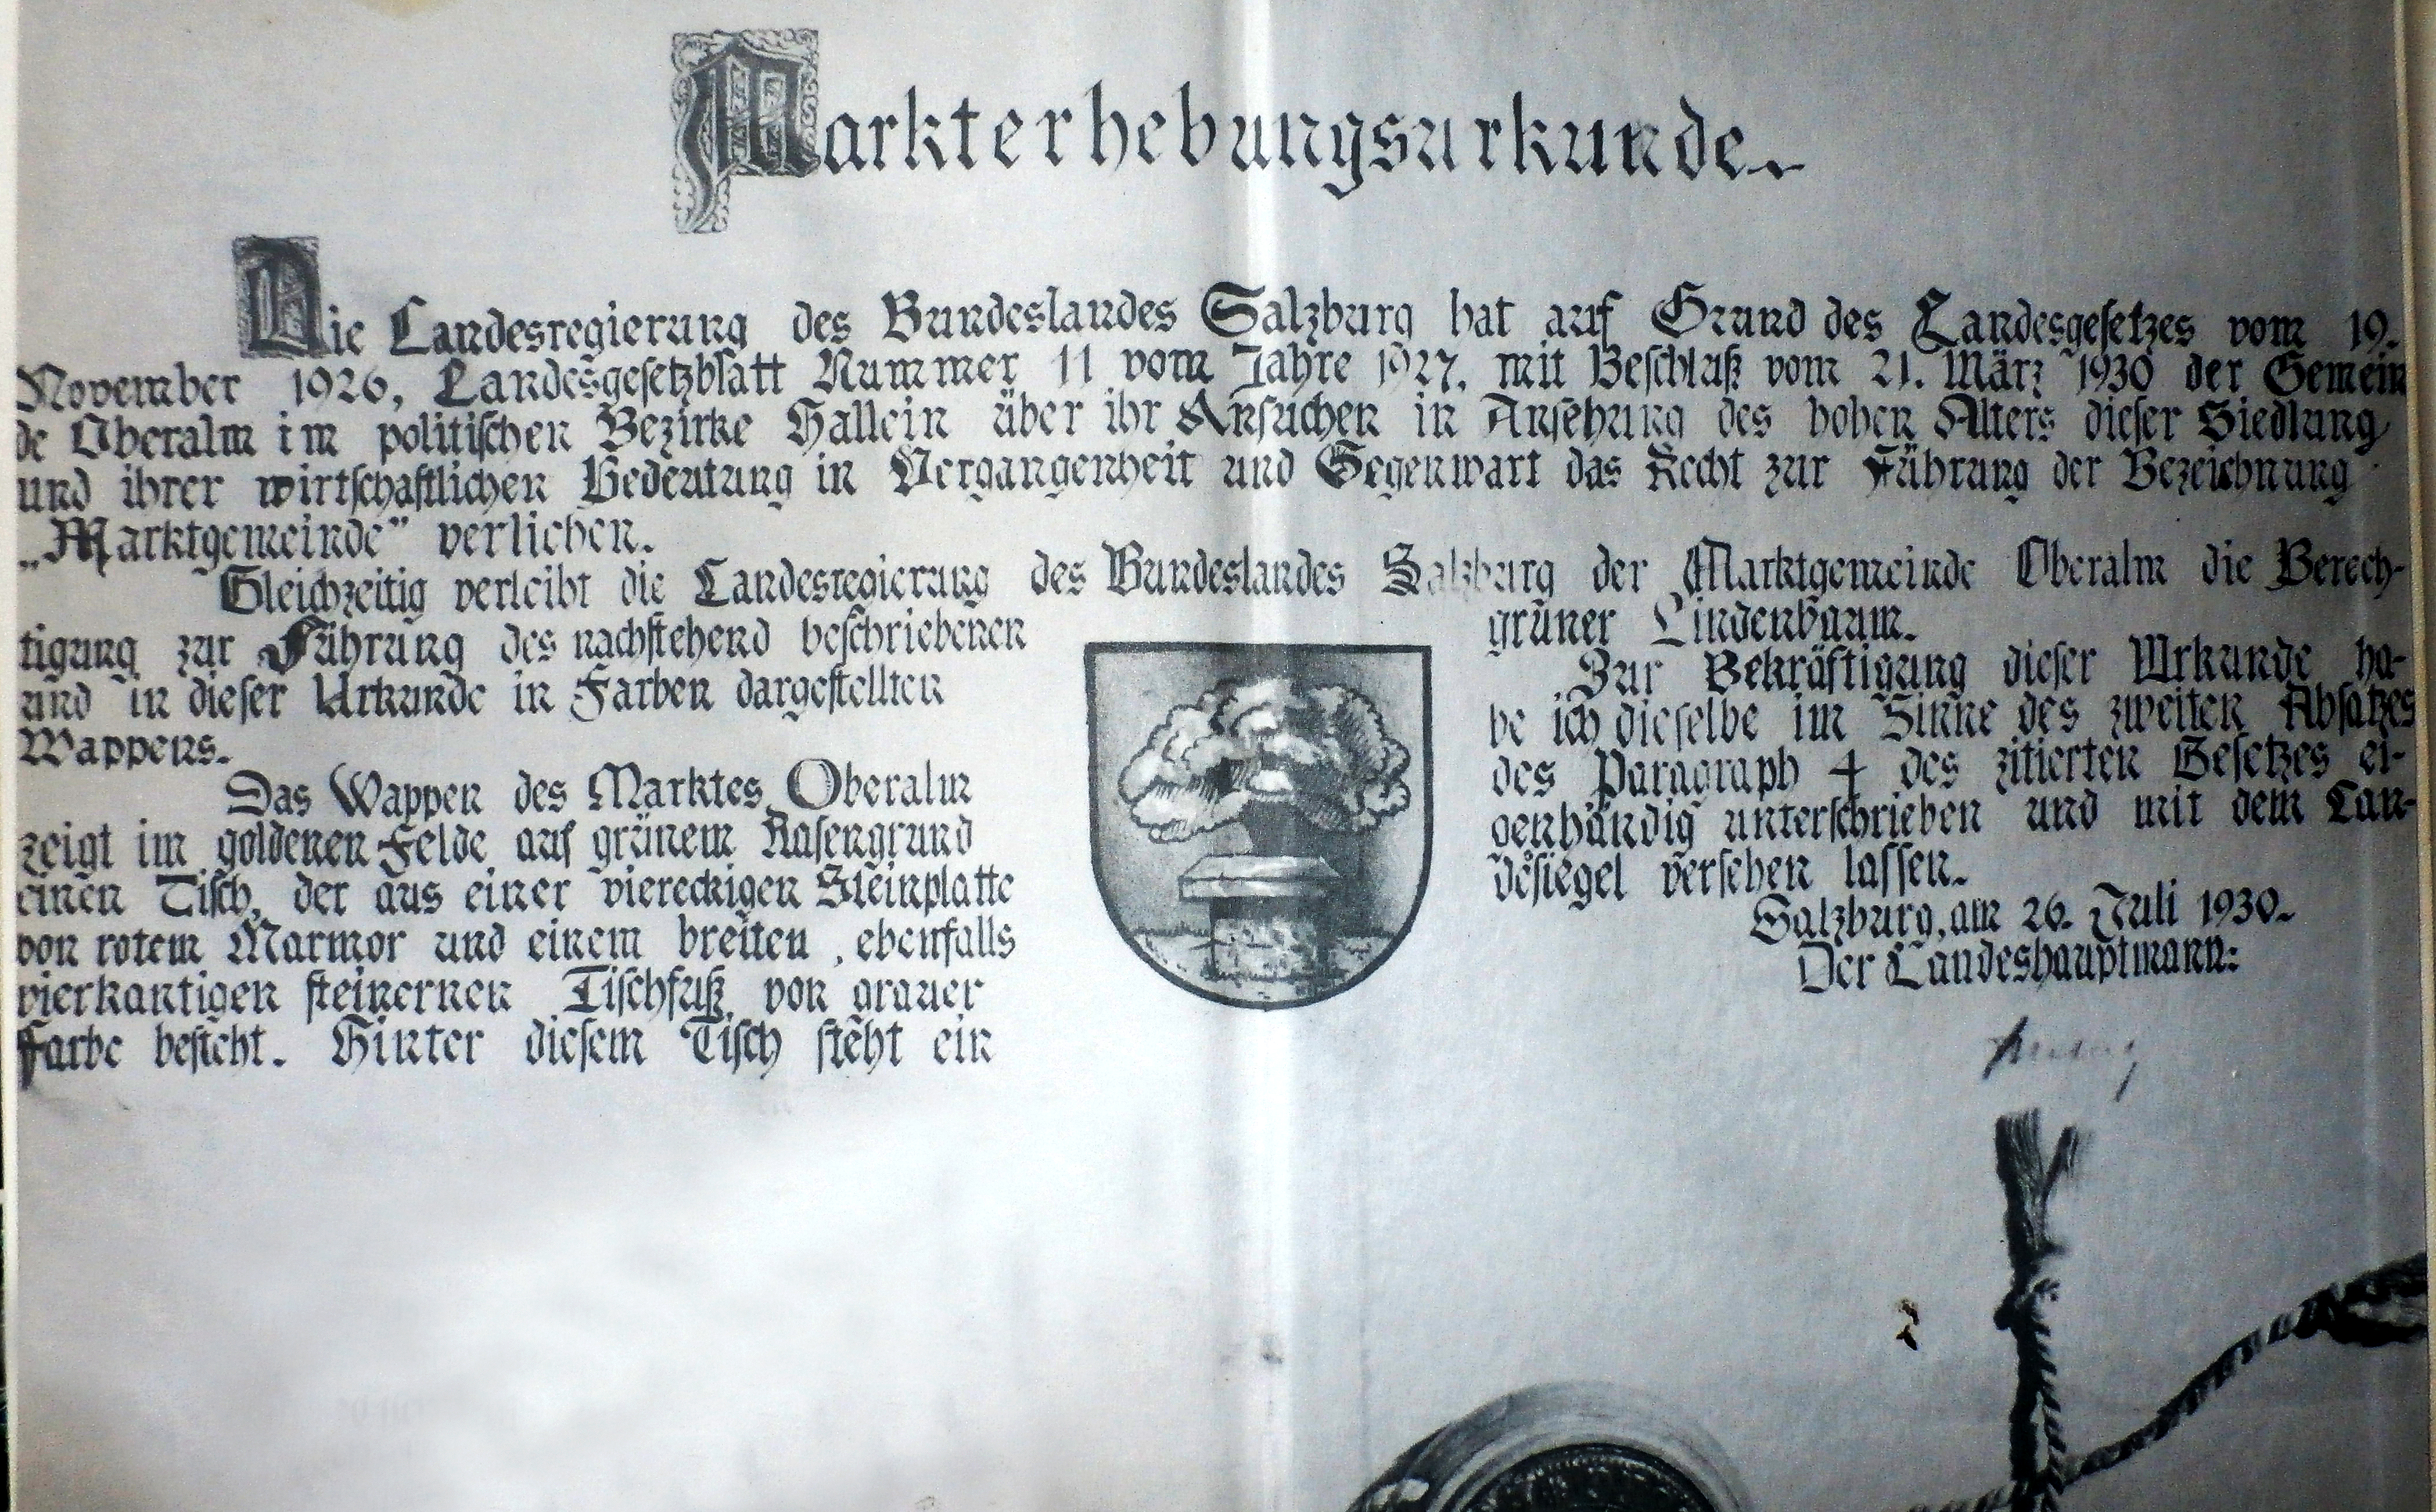 Markterhebungsurkunde.
Die Landesregierung des Bundeslandes Salzburg hat auf Grund des Landesgesetzes vom 19.
November 1926, Landesgesetzblatt Nummer 11 vom Jahre 1927, mit Beschluß vom 21. März 1930 der Gemein
de Oberalm im politischen Bezirke Hallein über ihr Ansuchen in Ansehung des hohen Alters dieser Siedlung
und ihrer wirtschaftlichen Bedeutung in Vergangenheit und Gegenwart das Recht zur Führung der Bezeichnung
„Marktgemeinde" verliehen.
Gleichzeitig verleiht die Landesregierung des Bundeslandes Salzburg der Marktgemeinde Oberalm die Berech-
tigung zur Führung des nachstehend beschriebenen
und in dieser Urkunde in Farben dargestellten
Wappens.
Das Wappen des Marktes Oberalm
zeigt im goldenen Felde auf grünem Rasengrund
einen Tisch, der aus einer viereckigen Steinplatte
von rotem Marmor und einem breiten, ebenfalls
vierkantigen steinernen Tischfuß von grauer
Farbe besteht. Hinter diesem Tisch steht ein
grüner Lindenbaum.
Zur Bekräftigung dieser Urkunde ha-
be ich dieselbe im Sinne des zweiten Absatzes
des Paragraph 4 des zitierten Gesetzes ei-
genhändig unterschrieben und mit dem Lan-
desiegel versehen lassen.
Salzburg, am 26. Juli 1930.
Der Landeshauptmann: